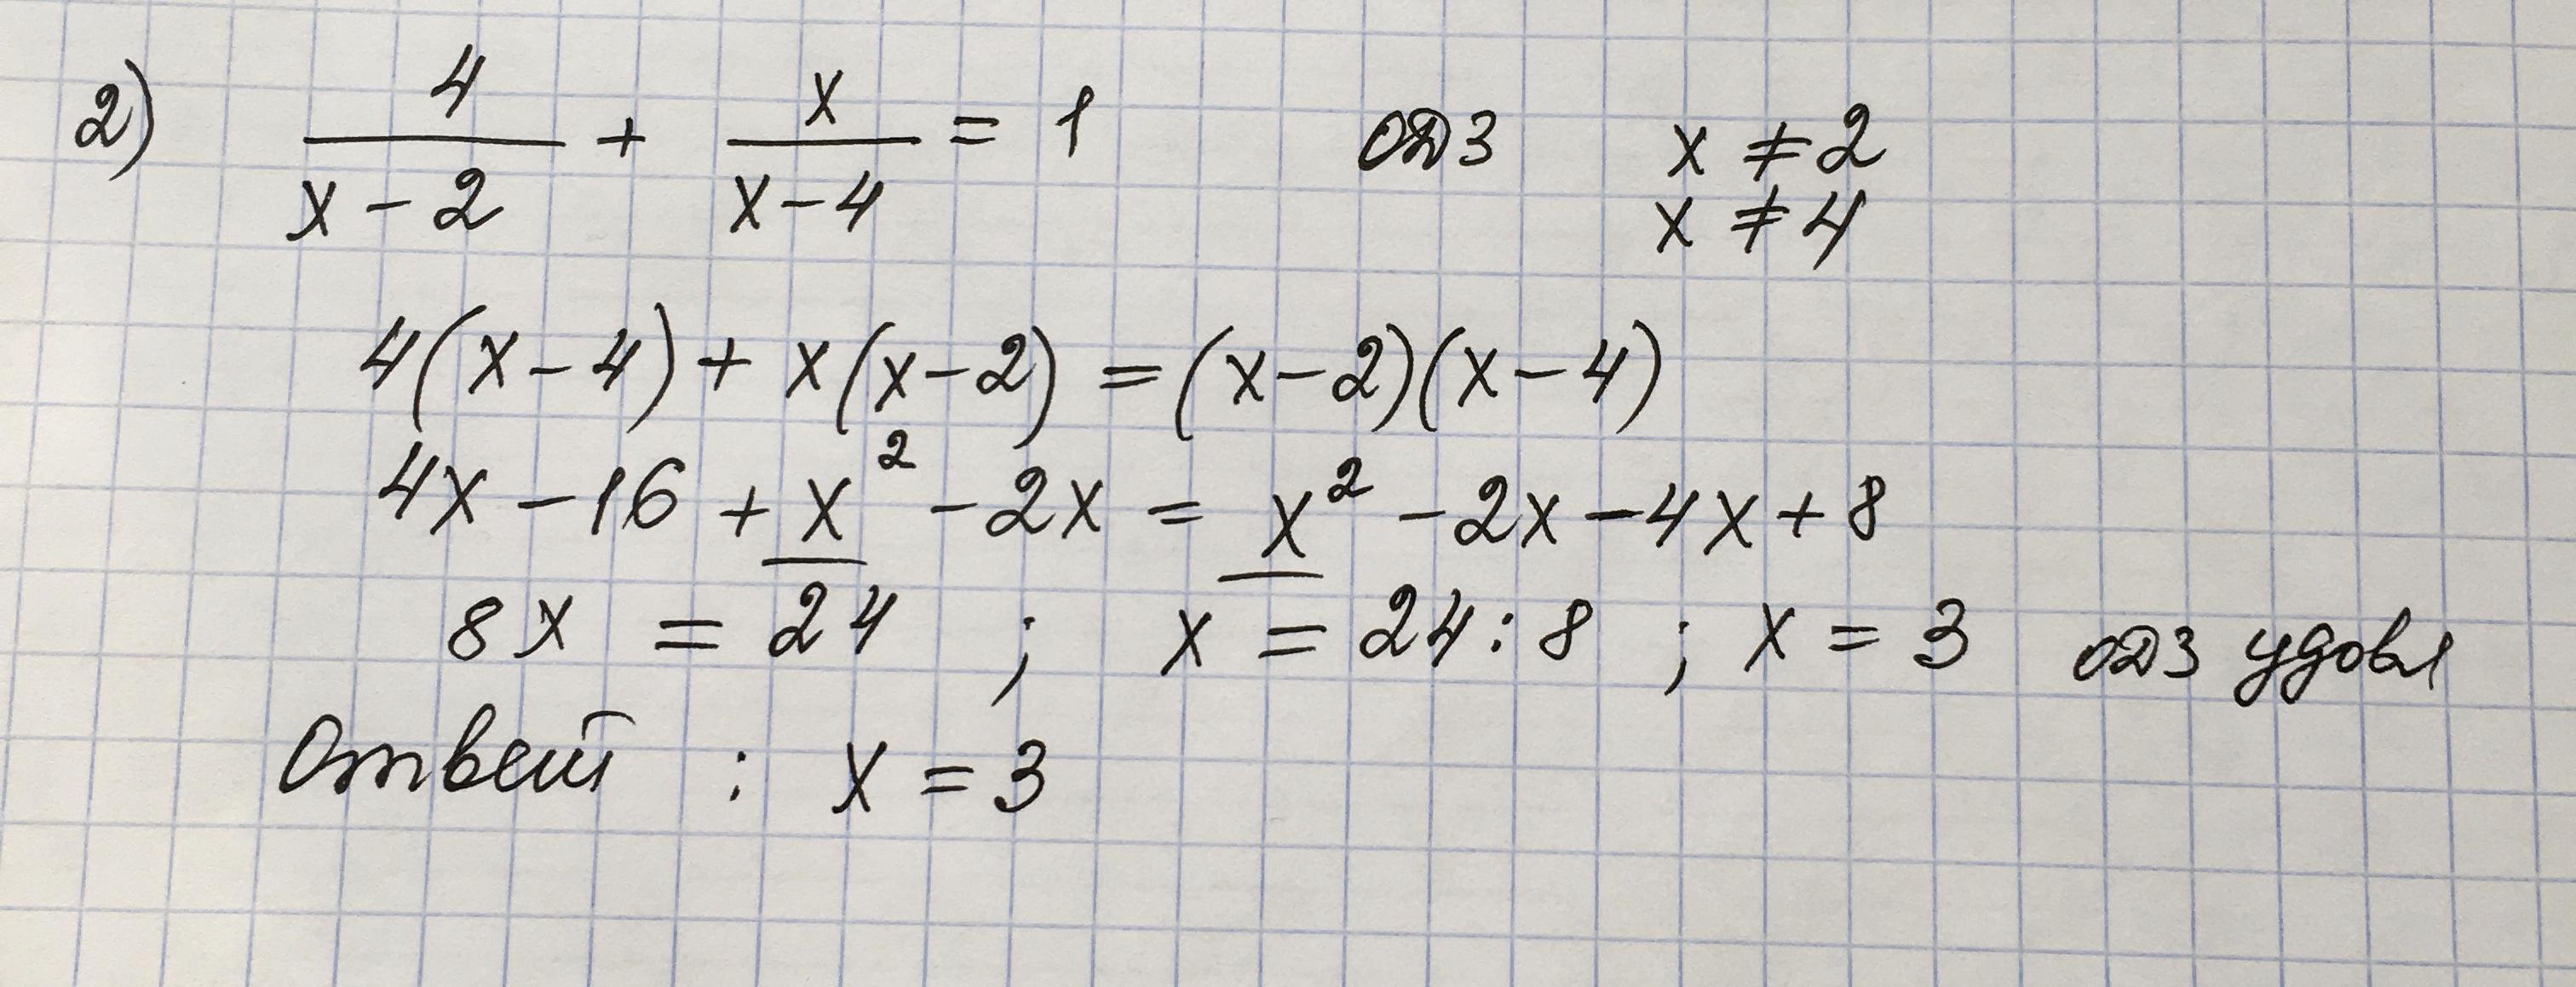 2) 4/(x-2) + x/(x-4) = 1 ОДЗ x ≠ 2
x ≠ 4
4(x-4) + x(x-2) = (x-2)(x-4)
4x - 16 + x² - 2x = x² - 2x - 4x + 8
8x = 24 ; x = 24:8 ; x = 3 ОДЗ удовл
Ответ : x = 3